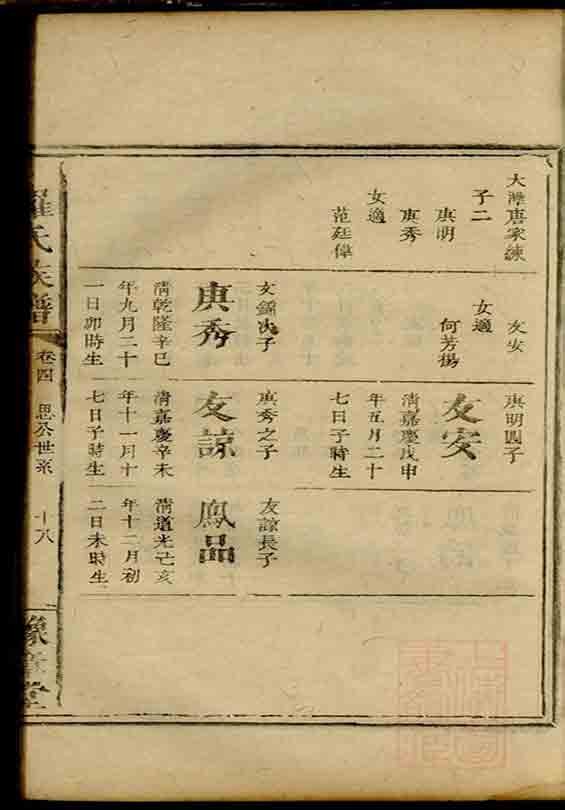 大灘唐家練
子二
庚明
庚秀
女適
范廷偉
友安
女適
何芳楊
文錦次子
庚秀
清乾隆辛巳
年九月二十
一日卯時生
庚明四子
友安
清嘉慶戊申
年五月二十
七日子時生
庚秀之子
友諒
清嘉慶辛未
年十一月十
七日子時生
友諒長子
鳳品
清道光己亥
年十二月初
二日未時生
羅氏族譜
卷四
思公世系
十八
豫章堂